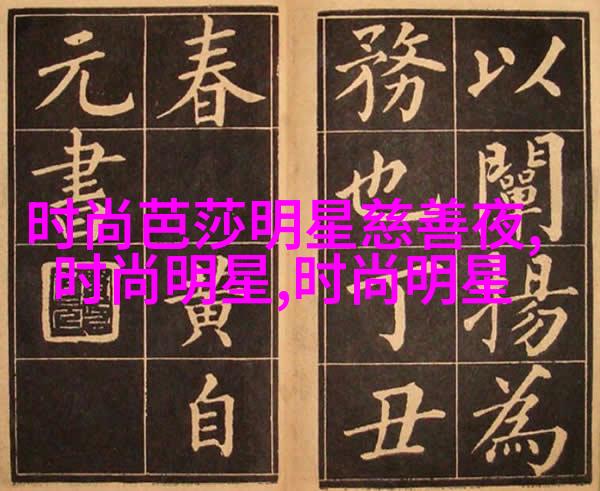 时尚芭莎明星慈善夜,
时尚明星,时尚明星
以闡揚為
務也丁丑
春黃自
元書